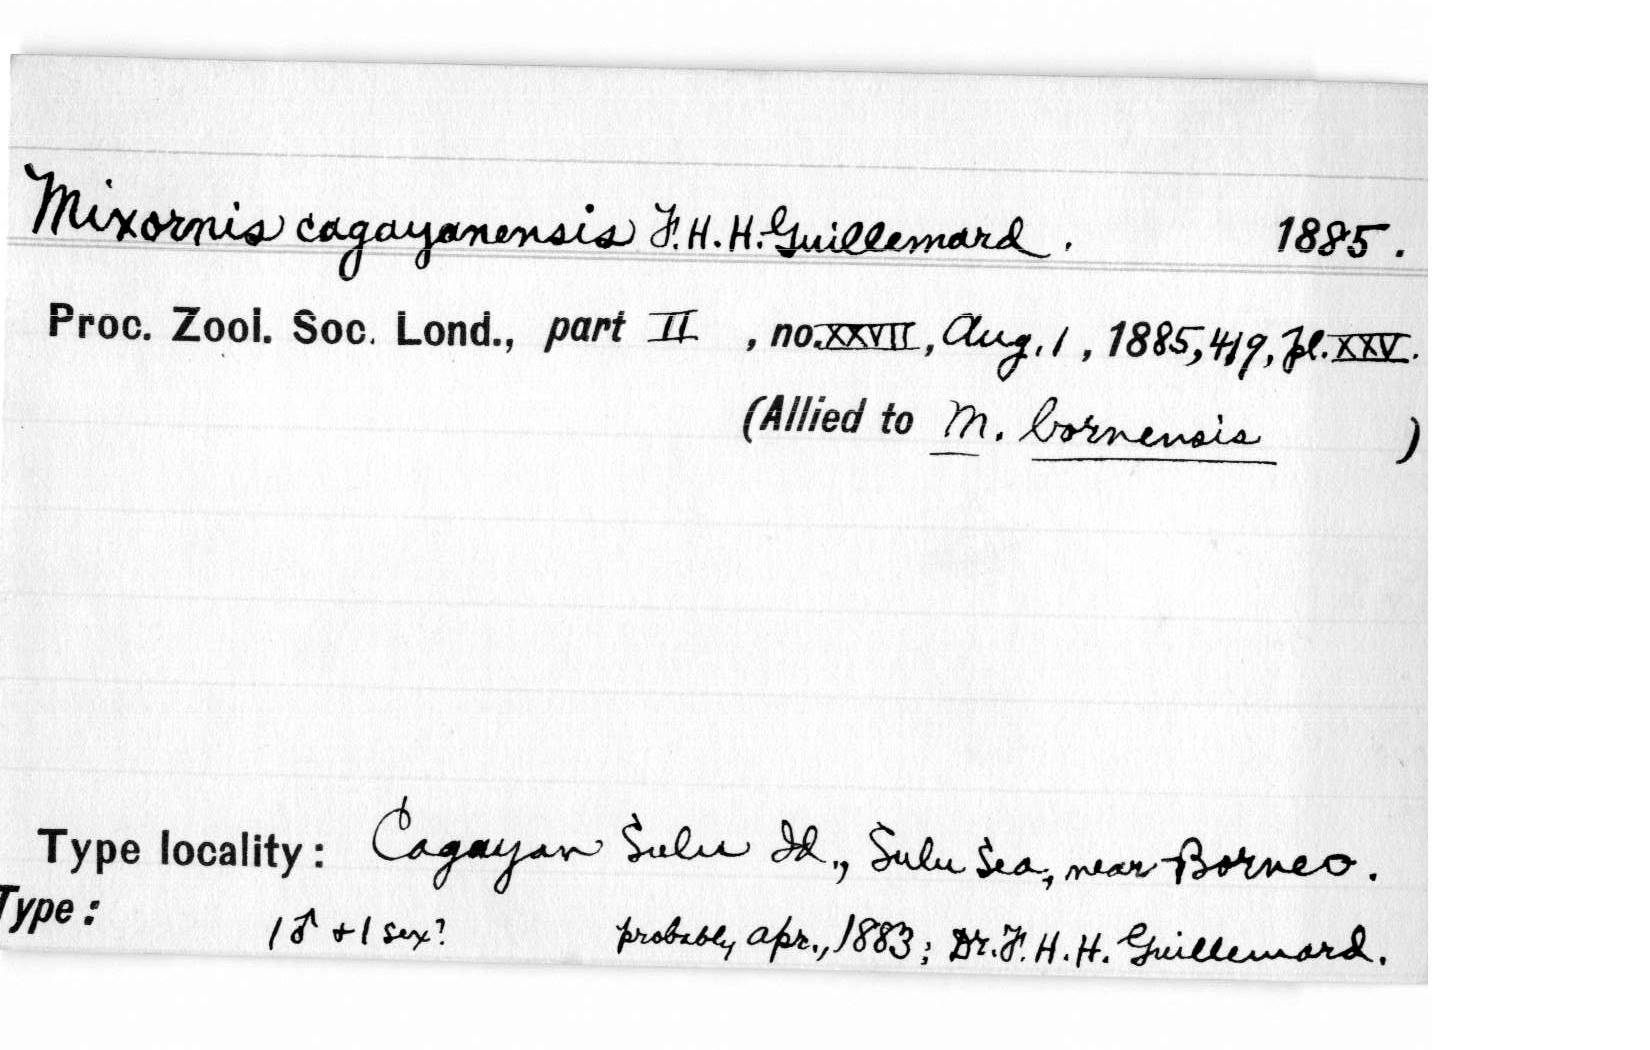 Mixornis cagayanensis F. H. H. Guillemard. 1885.
Proc. Zool. Soc. Lond., part II, no. XXVII, Aug. 1, 1885, 419, pl. XXV.
(Allied to M. bornensis)
Type locality: Cagayan Sulu Id., Sulu Sea, near Borneo.
Type: 1 ♂ + 1 sex? probably Apr., 1883; Dr. F. H. H. Guillemard.